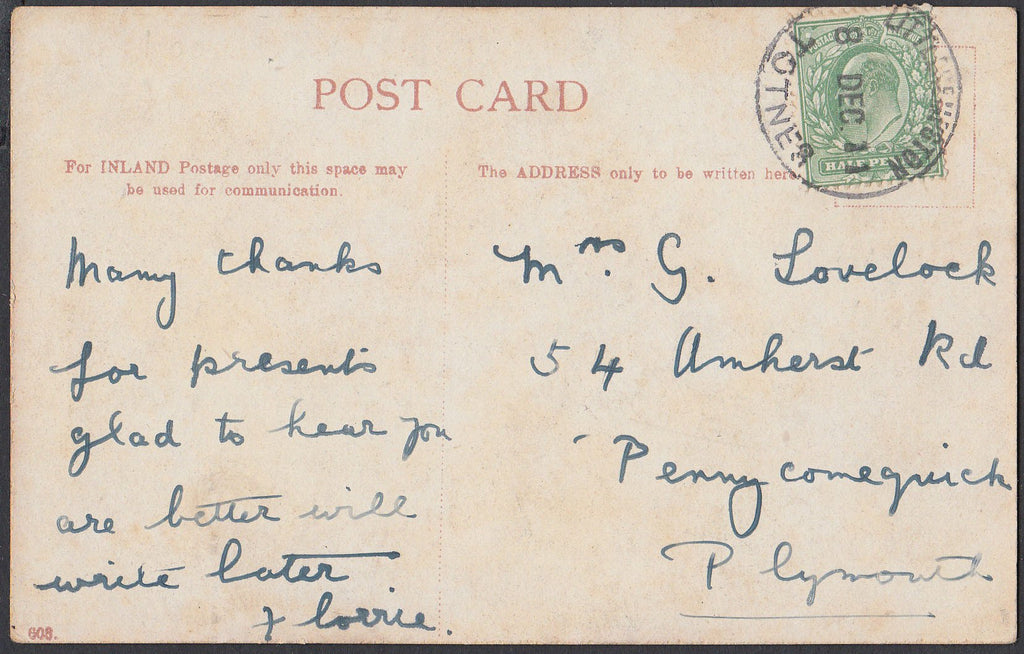 POST CARD
For INLAND Postage only this space may
be used for communication.
The ADDRESS only to be written here
HALFPE
8 DEC. 11
TOTNES
Many thanks
for presents
glad to hear you
are better will
write later
Florrie.
Mrs. G. Lovelock
54 Amherst Rd
Pennycomequick
Plymouth
603.